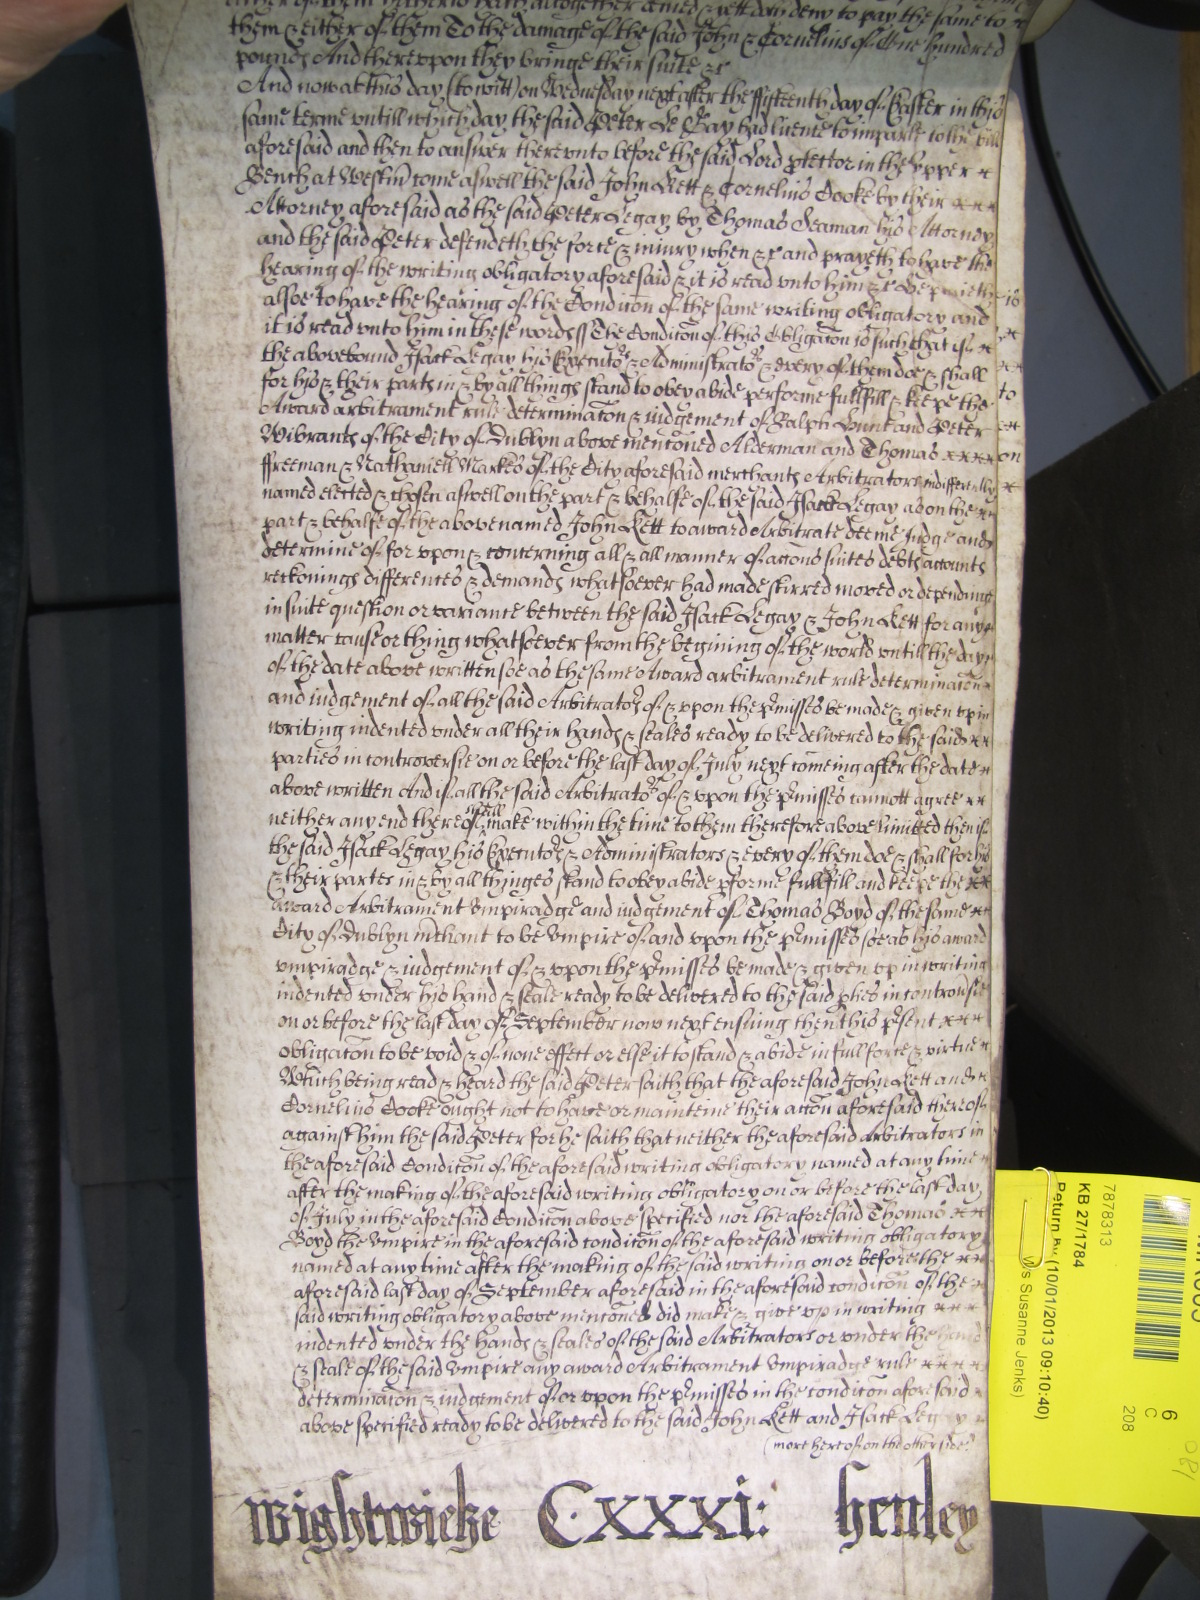 either of them hitherto hath altogether denied & yett doth deny to pay the same to
them & either of them To the damage of the said John & Cornelius of One hundred
pounds And therevpon they bringe their suite &c
And now at this day (to witt) on Wednesday next after the ffifteenth day of Easter in this
same terme vntill which day the said Peter Le Gay had licence to imparle to the bill
aforesaid and then to answer therevnto before the said Lord Protector in the Vpper
Bench at Westm come aswell the said John Kett & Cornelius Cooke by their
Attorney aforesaid as the said Peter Legay by Thomas Seaman his Attorney
and the said Peter defendeth the force & iniury when &c and prayeth to have the
hearing of the writing obligatory aforesaid & it is read vnto him &c He prayeth
alsoe to have the hearing of the Condicon of the same writing obligatory and
it is read vnto him in these words ss The Condicon of this Obligacon is such that if
the abovebound Isack Legay his Executors & Administrators & every of them doe & shall
for his & their parts in & by all things stand to obey abide performe fullfill & keepe the
Award arbitrament rule determinacon & iudgement of Ralph Hunt and Peter
Wibrants of the City of Dublyn above mencioned Alderman and Thomas
ffreeman & Nathaniell Markes of the City aforesaid merchants Arbitrators indifferently
named elected & chosen aswell on the part & behalfe of the said Isack Legay as on the
part & behalfe of the abovenamed John Kett to award Arbitrate deeme Judge and
determine of for vpon & concerning all & all manner of accons suites debts accounts
reckonings differences & demands whatsoever had made stirred moved or depending
in suite question or variance betweene the said Isack Legay & John Kett for any
matter cause or thing whatsoever from the begining of the world vntill the day
of the date above written soe as the same Award arbitrament rule determinacon
and iudgement of all the said Arbitrators of & vpon the pmisses be made & given vp in
writing indented vnder all their hands & seales ready to be delivered to the said
parties in controversie on or before the last day of July next comeing after the date
above written And if all the said Arbitrators of & vpon the pmisses cannott agree
neither any end thereof shall make within the time to them therefore above limitted then if
the said Isack Legay his Executors & Administrators & every of them doe & shall for his
& their partes in & by all thinges stand to obey abide pforme fullfill and keepe the
award Arbitrament vmpiradge and iudgement of Thomas Boyd of the same
City of Dublyn mchant to be vmpire of and vpon the pmisses soe as his award
vmpiradge & iudgement of & vpon the pmisses be made & given vp in writing
indented vnder his hand & seale ready to be delivered to the said pties in controusie
on or before the last day of September now next ensuing then this psent
obligacon to be void & of none effect or else it to stand & abide in full force & virtue
Which being read & heard the said Peter saith that the aforesaid John Kett and
Cornelius Cooke ought not to have or mainteine their accon aforesaid thereof
against him the said Peter for he saith that neither the aforesaid arbitrators in
the aforesaid Condicon of the aforesaid writing obligatory named at any time
after the making of the aforesaid writing obligatory on or before the last day
of July in the aforesaid Condicon above specified nor the aforesaid Thomas
Boyd the Vmpire in the aforesaid condicon of the aforesaid writing obligatory
named at any time after the making of the said writing on or before the
aforesaid last day of September aforesaid in the aforesaid condicon of the
said writing obligatory above mencioned did make & give vp in writing
indented vnder the hands & seales of the said Arbitrators or vnder the hand
& seale of the said Vmpire any award Arbitrament Vmpiradge rule
determinacon & iudgement of or vpon the pmisses in the condicon aforesaid
above specified ready to be delivered to the said John Kett and Isack Legay
(more hereof on the other side)
Wightwicke CXXXI: Henley
7878313
KB 27/1784
Return By (10/01/2013 09:10:40)
Ms Susanne Jenks)
6
C
208